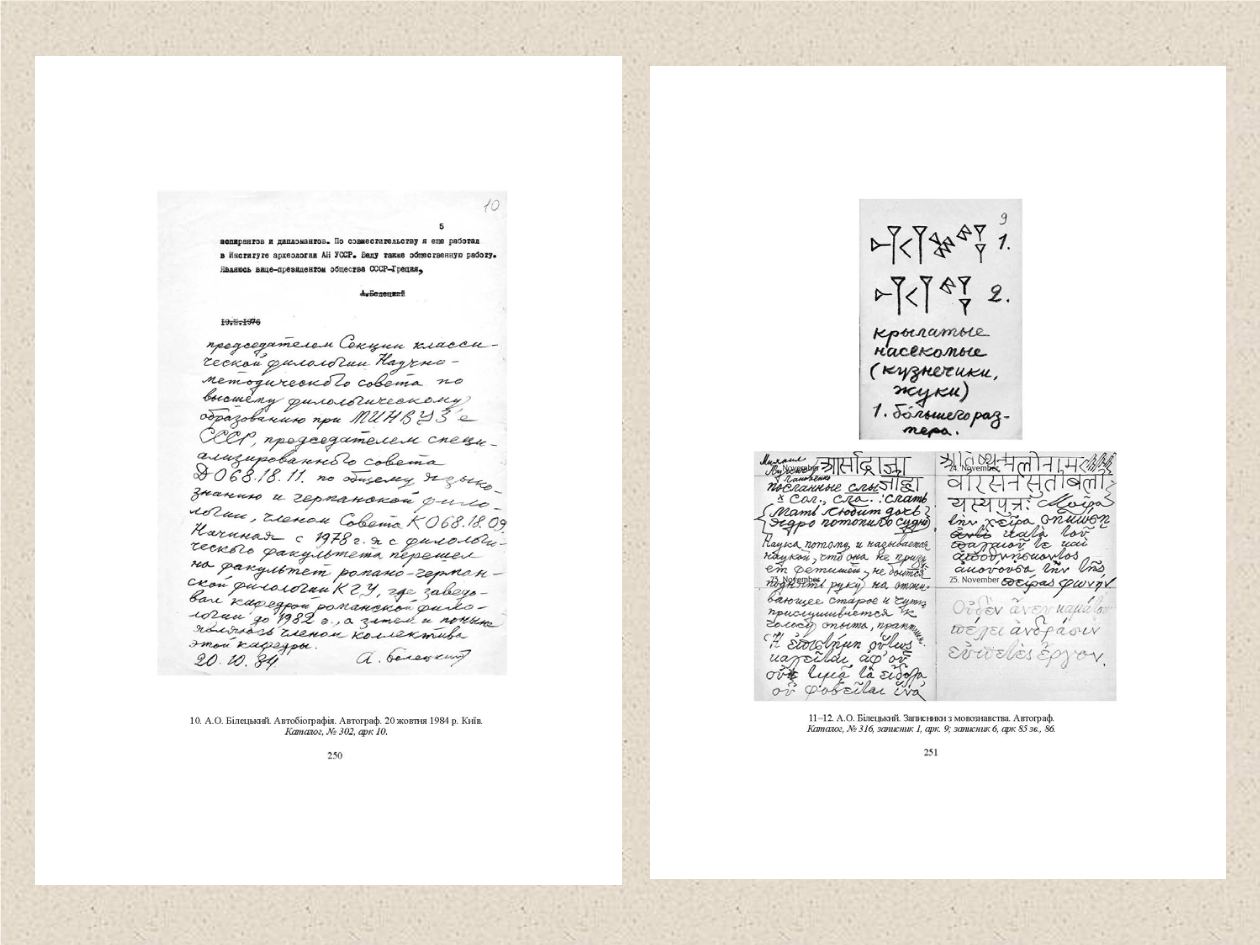 10
5
аспирантов и дипломантов. По совместительству я еще работал
в Институте археологии АН УССР. Веду также общественную работу.
Являюсь вице-президентом общества СССР-Греция,
А.Белецкий
председателем Секции класси-
ческой филологии Научно-
методического совета по
высшему филологическому
образованию при МИНВУЗ'е
СССР, председателем специ-
ализированного совета
Д 068.18.11. по общему языко-
знанию и германской фило-
логии, членом Совета К 068.18.09.
Начиная с 1978 г. я с филологи-
ческого факультета перешел
на факультет романо-герман-
ской филологии КГУ, где заведо-
вал кафедрой романской фило-
логии до 1982 г., а затем и поныне
являюсь членом коллектива
этой кафедры.
20.10.84 А. Белецкий
10. А.О. Білецький. Автобіографія. Автограф. 20 жовтня 1984 р. Київ.
Каталог, № 302, арк 10.
250
9
1.
2.
крылатые
насекомые
(кузнечики,
жуки)
1. большего раз-
мера.
Михаил
November
посланные
слать
Мать любит дочь
Ядро потопило судно
Наука потому и называется
наукой, что она не призна-
ет фетишей, не боится
25. November
поднять руку на отжи-
вающее старое и чутко
прислушивается к
голосу опыта, практики.
Ἡ ἐπιστήμη οὕτως
καλεῖται ἀφ' οὗ
οὐ τιμᾷ τὰ εἴδωλα
οὐ φοβεῖται ἵνα
24. November
χεῖρα
κατὰ τοῦ
παλαιοῦ τε καὶ
ἀποθνῄσκοντος
ἀκούουσα τὴν τῆς
25. November πείρας φωνήν
Οὐδὲν ἄνευ καμάτου
πέλει ἀνδράσιν
εὐπετὲς ἔργον.
11–12. А.О. Білецький. Записники з мовознавства. Автограф.
Каталог, № 316, записник 1, арк. 9; записник 6, арк 85 зв., 86.
251